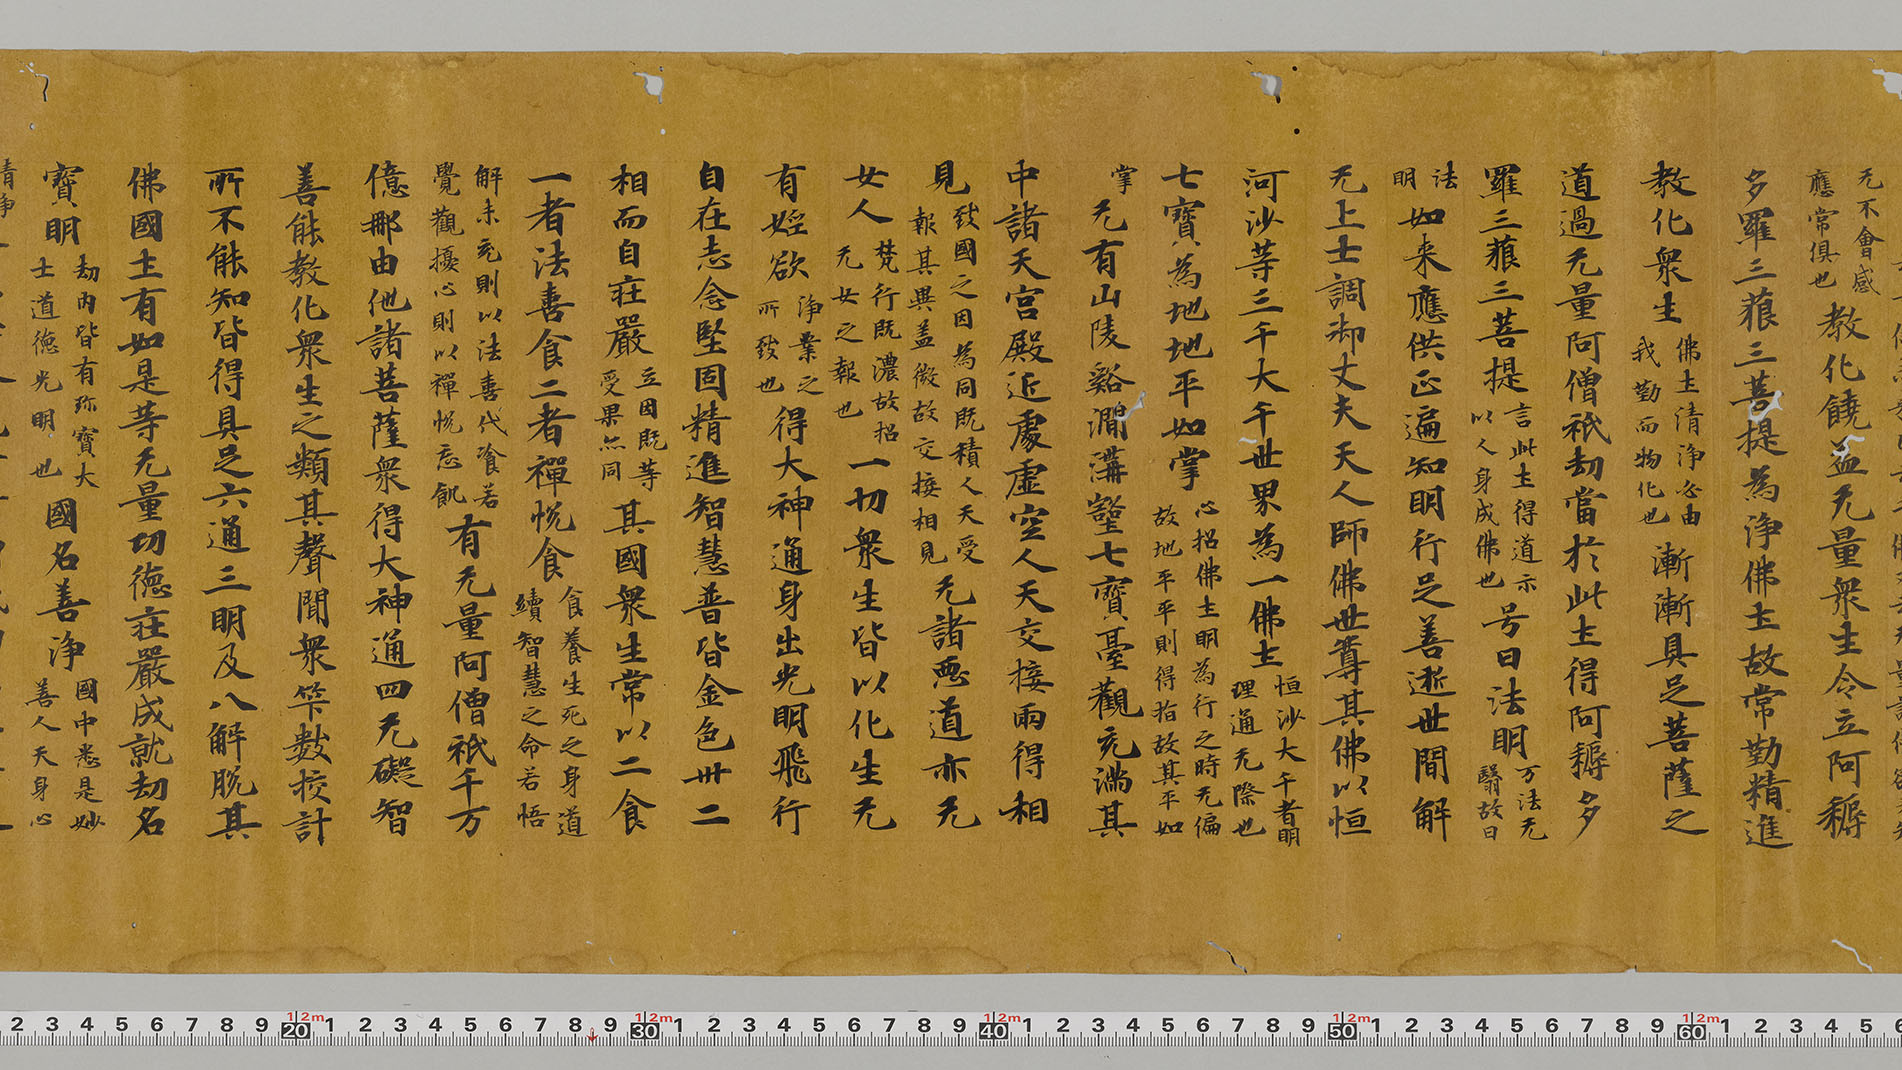 无不會感
應常俱也
教化饒益无量衆生令立阿耨
多羅三藐三菩提為淨佛土故常勤精進
教化衆生
佛土清淨必由
我勤而物化也
漸漸具足菩薩之
道過无量阿僧祇劫當於此土得阿耨多
羅三藐三菩提
言此土得道示
以人身成佛也
号曰法明
万法无
翳故曰
法
明
如来應供正遍知明行足善逝世間解
无上士調御丈夫天人師佛世尊其佛以恒
河沙等三千大千世界為一佛土
恒沙大千者明
理通无際也
七寶為地地平如掌
心招佛土明為行之時无偏
故地平平則得指故其平如
掌
无有山陵谿澗溝壑七寶臺觀充滿其
中諸天宮殿近處虛空人天交接兩得相
見
致國之因為同既積人天受
報其異盖微故交接相見
无諸惡道亦无
女人
梵行既濃故招
无女之報也
一切衆生皆以化生无
有婬欲
淨業之
所致也
得大神通身出光明飛行
自在志念堅固精進智慧普皆金色卅二
相而自庄嚴
立因既等
受果亦同
其國衆生常以二食
一者法喜食二者禪悅食
食養生死之身道
續智慧之命若悟
解未充則以法喜代飡若
覺觀擾心則以禪悅忘飢
有无量阿僧祇千万
億那由他諸菩薩衆得大神通四无礙智
善能教化衆生之類其聲聞衆筭數挍計
所不能知皆得具足六通三明及八解脫其
佛國土有如是等无量功德庄嚴成就劫名
寶明
劫內皆有珎寶大
士道德光明也
國名善淨
國中悉是妙
善人天身心